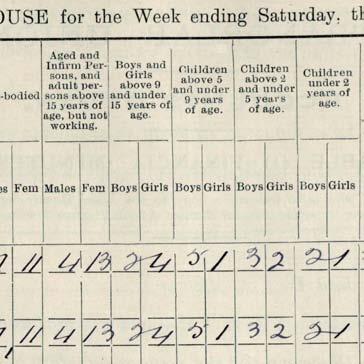 OUSE for the Week ending Saturday, th
-bodied
Aged and Infirm Per-sons, and adult per-sons above 15 years of age, but not working.
Boys and Girls above 9 and under 15 years of age.
Children above 5 and under 9 years of age.
Children above 2 and under 5 years of age.
Children under 2 years of age.
es Fem Males Fem Boys Girls Boys Girls Boys Girls Boys Girls
11 4 13 2 4 5 1 3 2 2 1
11 4 13 2 4 5 1 3 2 2 1